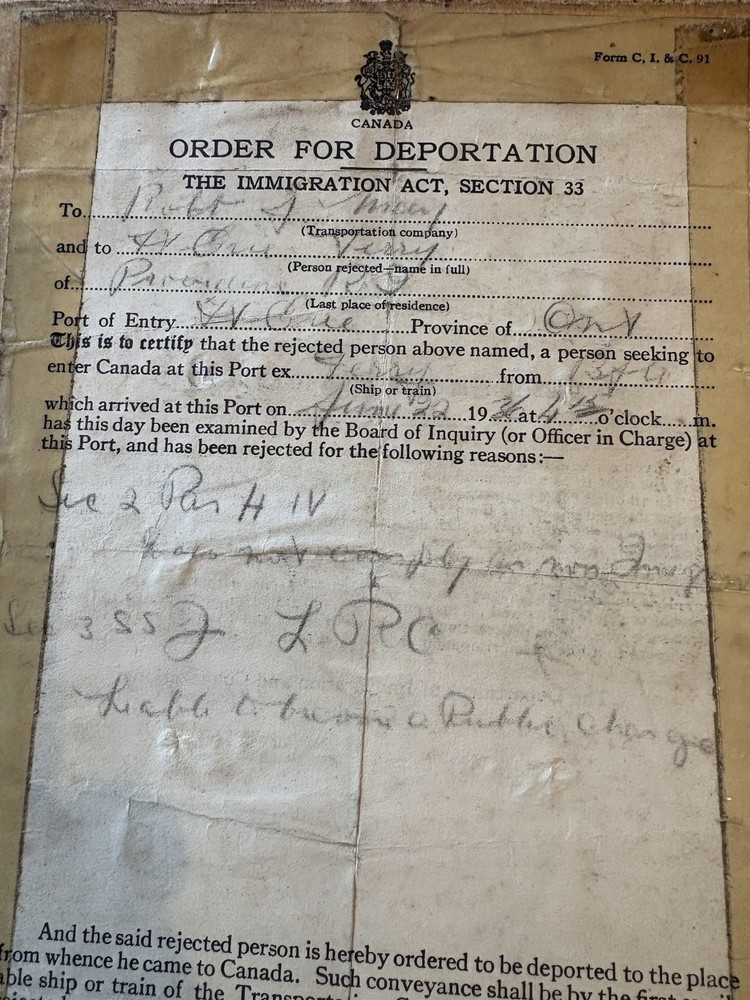 Form C, I. & C. 91
CANADA
ORDER FOR DEPORTATION
THE IMMIGRATION ACT, SECTION 33
To Robt J.
(Transportation company)
and to Ft Erie Ferry
(Person rejected—name in full)
of Providence R I
(Last place of residence)
Port of Entry Ft Erie Province of Ont
This is to certify that the rejected person above named, a person seeking to
enter Canada at this Port ex Ferry from Bflo
(Ship or train)
which arrived at this Port on June 22 19 36 at 4 15 o'clock m.
has this day been examined by the Board of Inquiry (or Officer in Charge) at
this Port, and has been rejected for the following reasons:—
Sec 2 Par H IV
does not comply as non Immig
Sec 3 SS J L P C
Liable to become a Public charge
And the said rejected person is hereby ordered to be deported to the place
from whence he came to Canada. Such conveyance shall be by the first
able ship or train of the